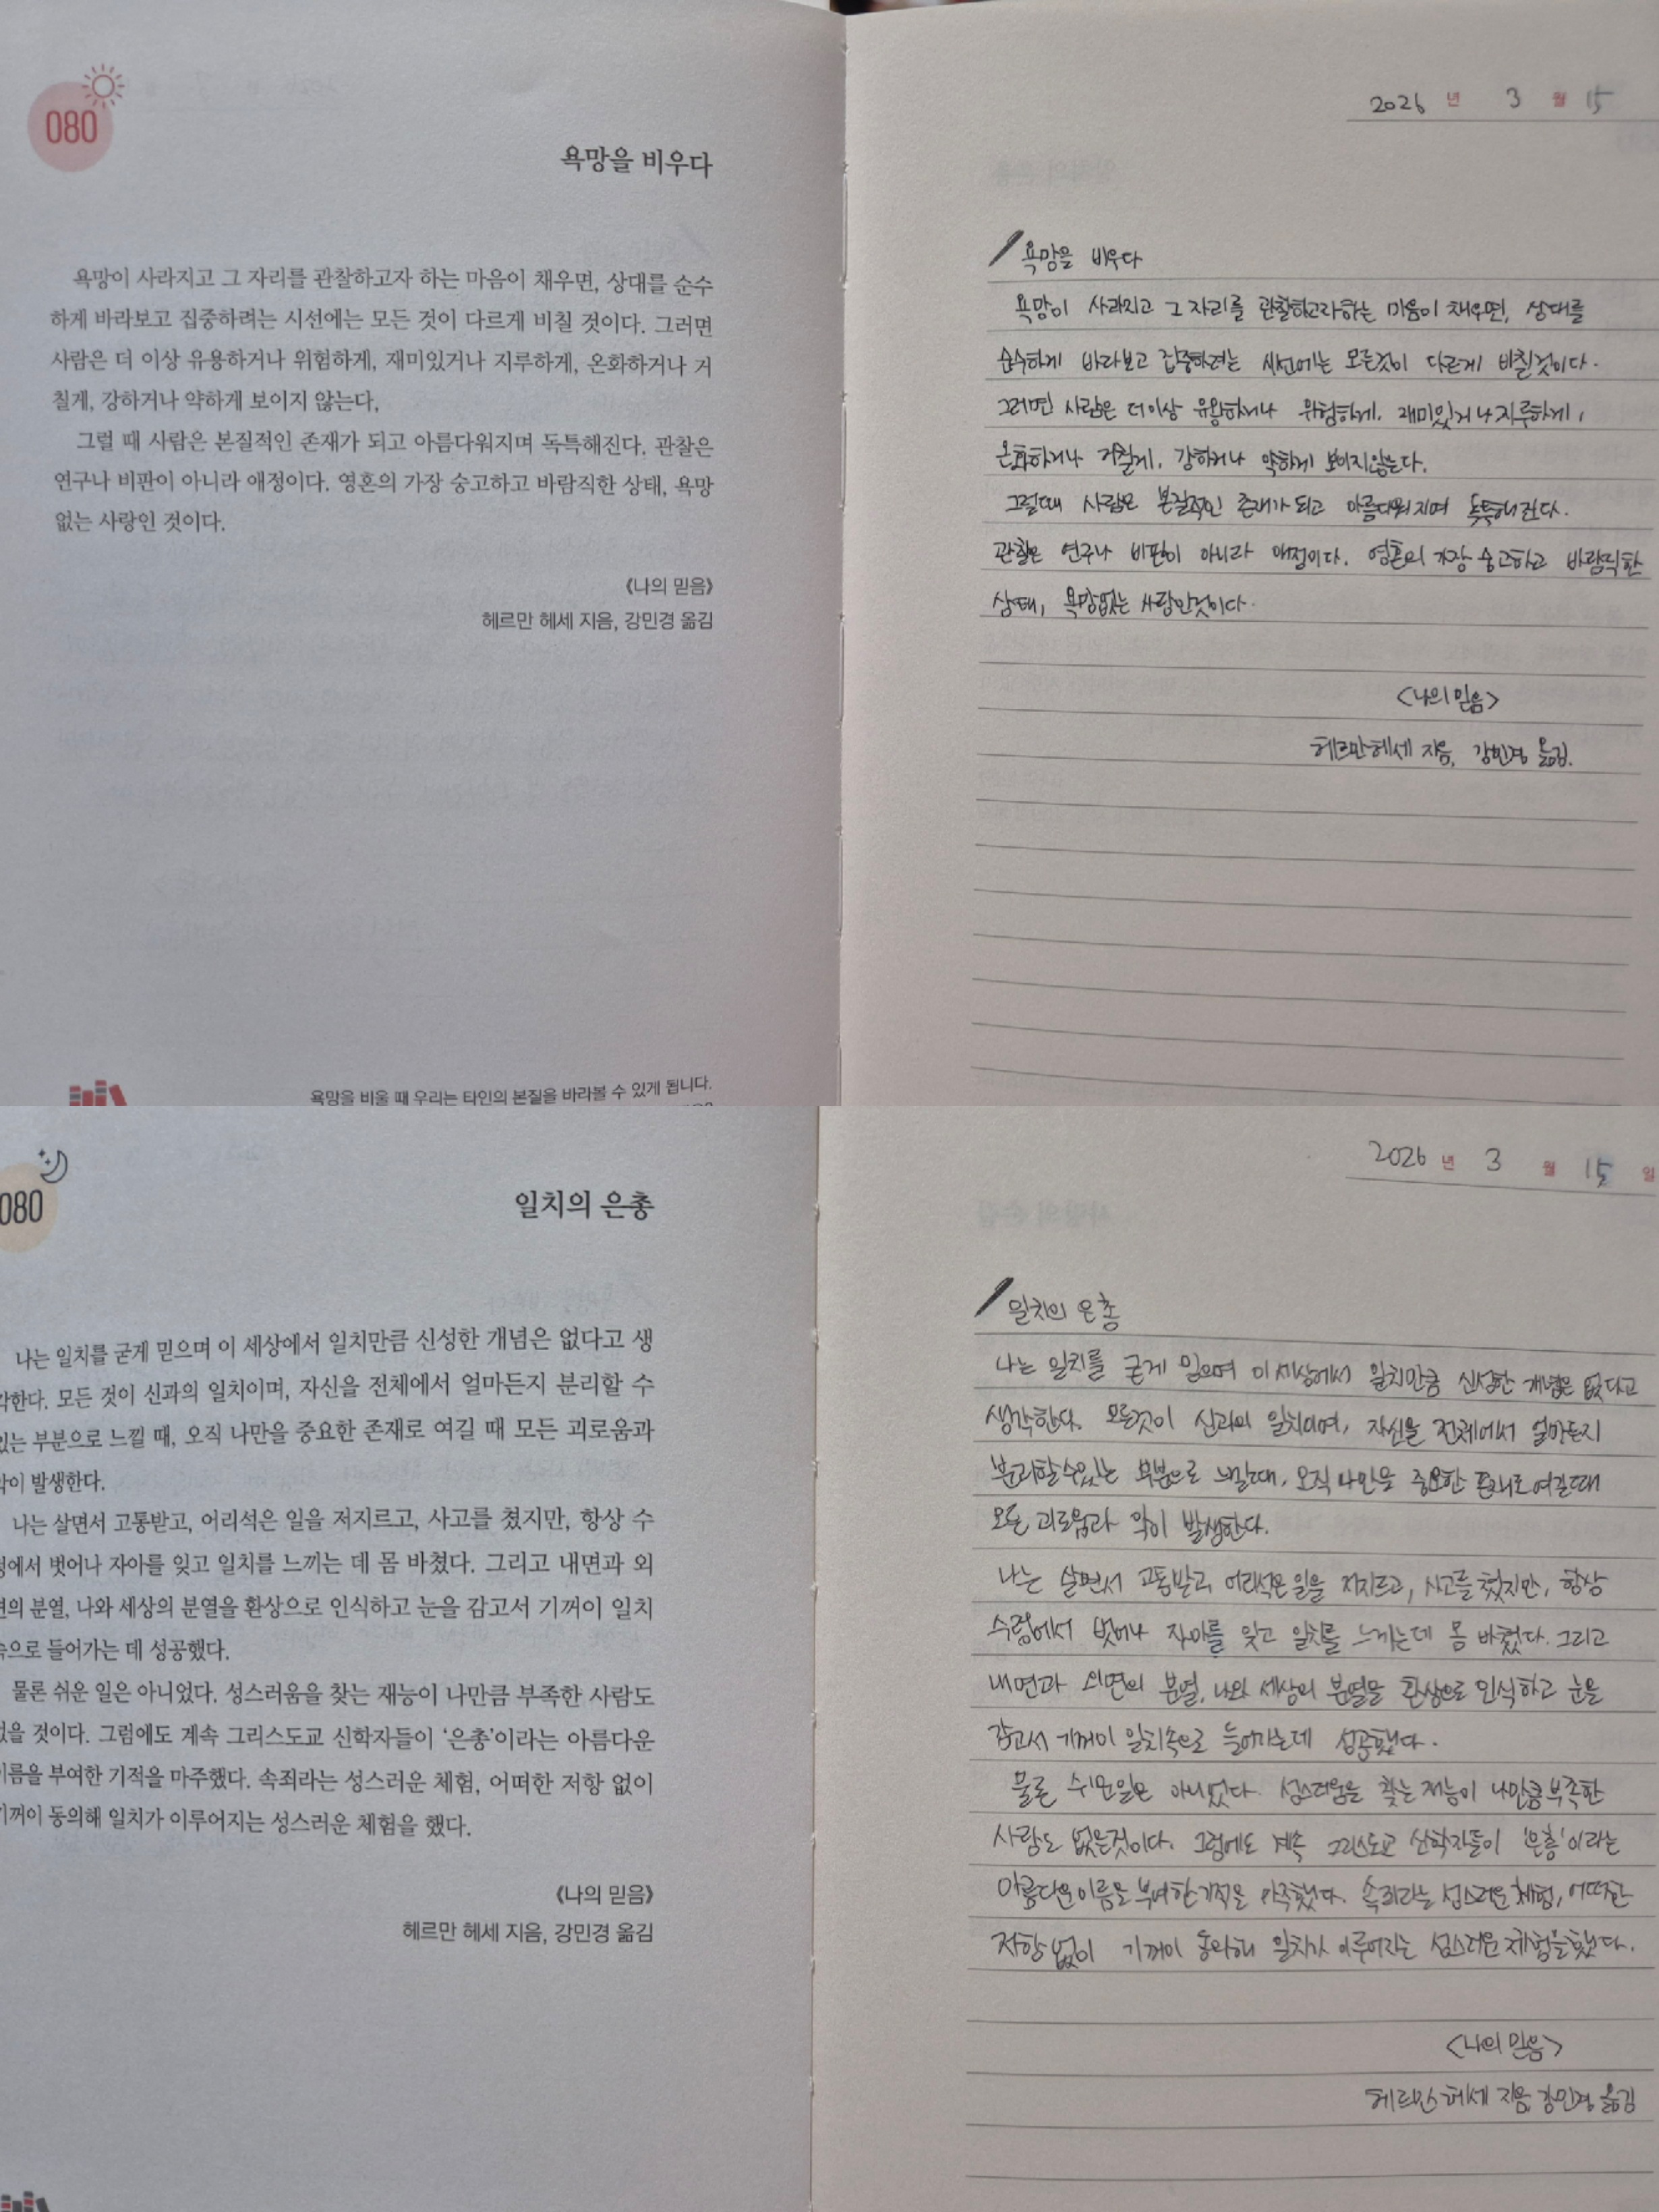 080
욕망을 비우다
욕망이 사라지고 그 자리를 관찰하고자 하는 마음이 채우면, 상대를 순수
하게 바라보고 집중하려는 시선에는 모든 것이 다르게 비칠 것이다. 그러면
사람은 더 이상 유용하거나 위험하게, 재미있거나 지루하게, 온화하거나 거
칠게, 강하거나 약하게 보이지 않는다.
그럴 때 사람은 본질적인 존재가 되고 아름다워지며 독특해진다. 관찰은
연구나 비판이 아니라 애정이다. 영혼의 가장 숭고하고 바람직한 상태, 욕망
없는 사랑인 것이다.
《나의 믿음》
헤르만 헤세 지음, 강민경 옮김
욕망을 비울 때 우리는 타인의 본질을 바라볼 수 있게 됩니다.
2026 년 3 월 15
욕망을 비우다
욕망이 사라지고 그 자리를 관찰하고자하는 마음이 채우면, 상대를
순수하게 바라보고 집중하려는 시선에는 모든것이 다르게 비칠것이다.
그러면 사람은 더이상 유용하거나 위험하게, 재미있거나 지루하게,
온화하거나 거칠게, 강하거나 약하게 보이지않는다.
그럴때 사람은 본질적인 존재가 되고 아름다워지며 독특해진다.
관찰은 연구나 비판이 아니라 애정이다. 영혼의 가장 숭고하고 바람직한
상태, 욕망없는 사랑인것이다.
<나의 믿음>
헤르만헤세 지음, 강민경 옮김.
080
일치의 은총
나는 일치를 굳게 믿으며 이 세상에서 일치만큼 신성한 개념은 없다고 생
각한다. 모든 것이 신과의 일치이며, 자신을 전체에서 얼마든지 분리할 수
있는 부분으로 느낄 때, 오직 나만을 중요한 존재로 여길 때 모든 괴로움과
악이 발생한다.
나는 살면서 고통받고, 어리석은 일을 저지르고, 사고를 쳤지만, 항상 수
렁에서 벗어나 자아를 잊고 일치를 느끼는 데 몸 바쳤다. 그리고 내면과 외
면의 분열, 나와 세상의 분열을 환상으로 인식하고 눈을 감고서 기꺼이 일치
속으로 들어가는 데 성공했다.
물론 쉬운 일은 아니었다. 성스러움을 찾는 재능이 나만큼 부족한 사람도
없을 것이다. 그럼에도 계속 그리스도교 신학자들이 ‘은총’이라는 아름다운
이름을 부여한 기적을 마주했다. 속죄라는 성스러운 체험, 어떠한 저항 없이
기꺼이 동의해 일치가 이루어지는 성스러운 체험을 했다.
《나의 믿음》
헤르만 헤세 지음, 강민경 옮김
2026 년 3 월 15 일
일치의 은총
나는 일치를 굳게 믿으며 이 세상에서 일치만큼 신성한 개념은 없다고
생각한다. 모든것이 신과의 일치이며, 자신을 전체에서 얼마든지
분리할수있는 부분으로 느낄때, 오직 나만을 중요한 존재로 여길때
모든 괴로움과 악이 발생한다.
나는 살면서 고통받고, 어리석은 일을 저지르고, 사고를 쳤지만, 항상
수렁에서 벗어나 자아를 잊고 일치를 느끼는데 몸 바쳤다. 그리고
내면과 외면의 분열, 나와 세상의 분열을 환상으로 인식하고 눈을
감고서 기꺼이 일치속으로 들어가는데 성공했다.
물론 쉬운일은 아니었다. 성스러움을 찾는 재능이 나만큼 부족한
사람도 없을것이다. 그럼에도 계속 그리스도교 신학자들이 '은총'이라는
아름다운 이름을 부여한 기적을 마주했다. 속죄라는 성스러운 체험, 어떠한
저항 없이 기꺼이 동의해 일치가 이루어지는 성스러운 체험을했다.
<나의 믿음>
헤르만 헤세 지음, 강민경 옮김